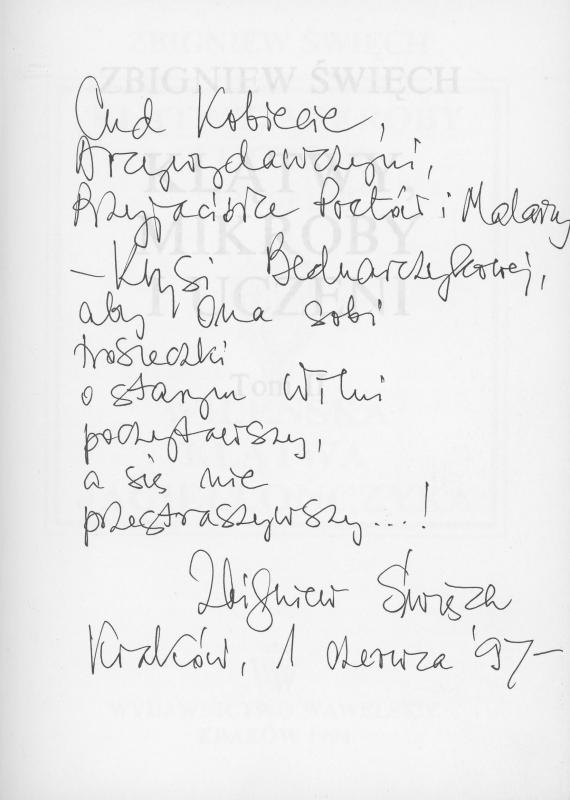 ZBIGNIEW ŚWIĘCH
Cud Kobiecie,
Arcywydawczyni,
KLĄTWY,
Przyjaciółce Poetów i Malarzy
MIKROBY
– Krysi Bednarczykowej,
I UCZENI
aby Ona sobi
troszeczki
Tom II
o starym Wilni
poczytawszy,
a się nie
przestraszywszy...!
Zbigniew Święch
Kraków, 1 czerwca '97–
WYDAWNICTWO WAWELSKIE